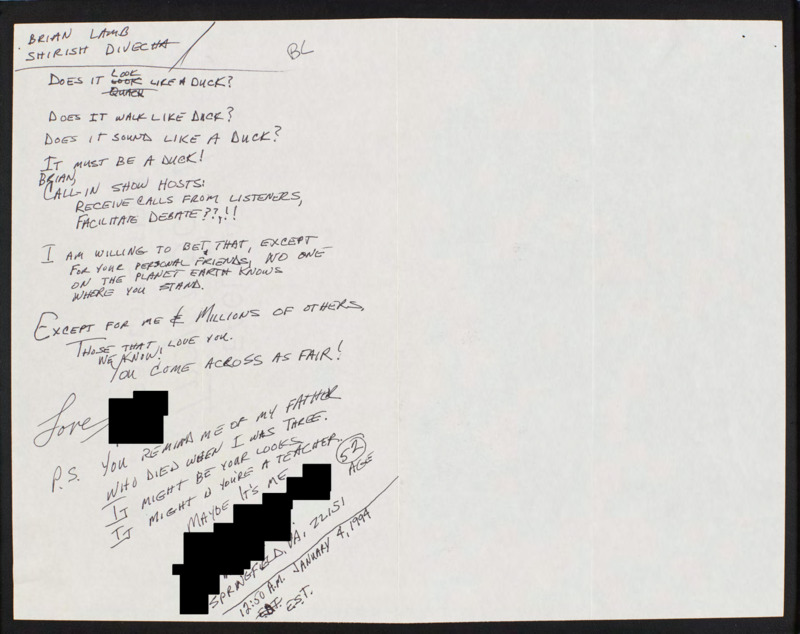 BRIAN LAMB
SHIRISH DIVECHA
BL
DOES IT LOOK LIKE A DUCK?
DOES IT WALK LIKE DUCK?
DOES IT SOUND LIKE A DUCK?
IT MUST BE A DUCK!
BRIAN,
CALL-IN SHOW HOSTS:
RECEIVE CALLS FROM LISTENERS,
FACILITATE DEBATE??,!!
I AM WILLING TO BET, THAT, EXCEPT
FOR YOUR PERSONAL FRIENDS, NO ONE
ON THE PLANET EARTH KNOWS
WHERE YOU STAND.
EXCEPT FOR ME & MILLIONS OF OTHERS,
THOSE THAT LOVE YOU.
WE KNOW!
YOU COME ACROSS AS FAIR!
Love
P.S. YOU REMIND ME OF MY FATHER
WHO DIED WHEN I WAS THREE.
IT MIGHT BE YOUR LOOKS
IT MIGHT YOU'RE A TEACHER.
MAYBE IT'S ME
52
AGE
SPRINGFIELD, VA, 22151
12:50 A.M. JANUARY 4, 1994
E.S.T.